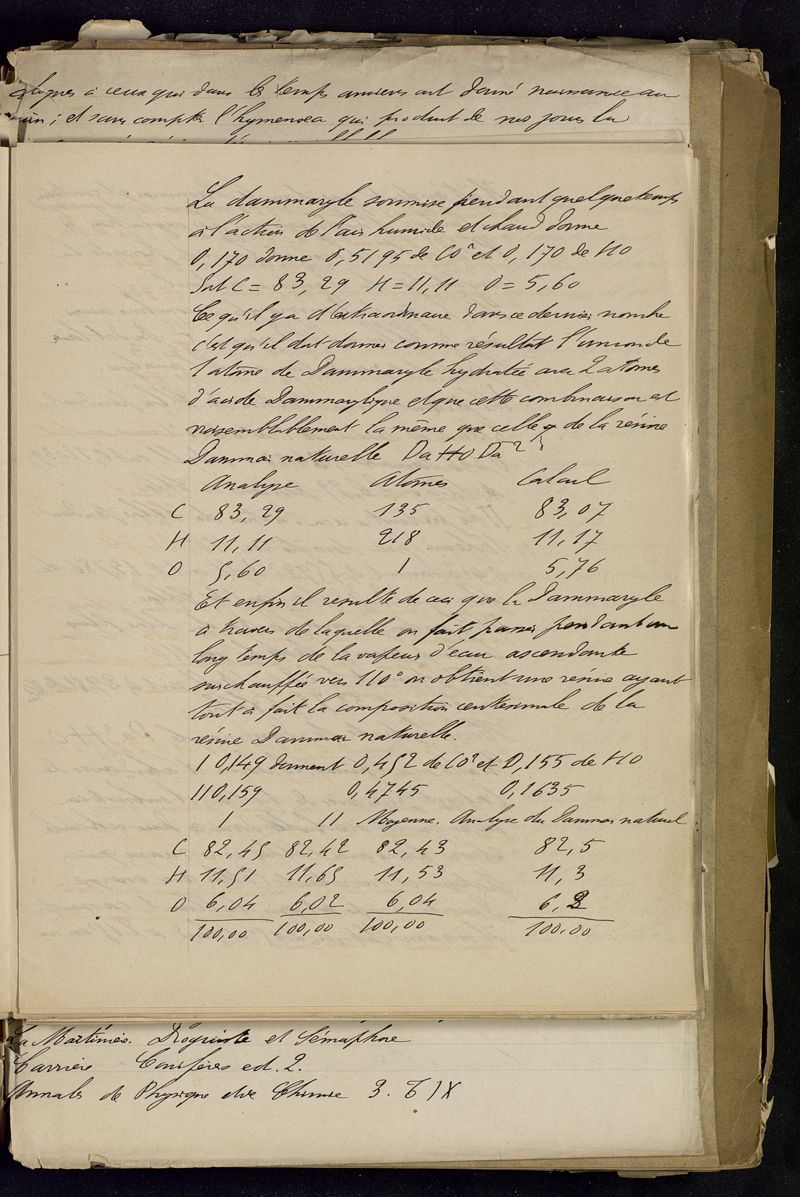 logues à ceux qui dans les temps anciens ont donné naissance au
; et sans compter l'hymenoea qui produit de nos jours la
La dammaryle soumise pendant quelque temps
à l'action de l'air humide et chaud donne
0,170 donne 0,5195 de CO² et 0,170 de HO
Soit C = 83,29 H = 11,11 O = 5,60
Ce qu'il y a d'extraordinaire dans ce dernier nombre
c'est qu'il doit donner comme résultat l'union de
l'atôme de Dammaryle hydratée avec 2 atomes
d'acide Dammarylique et que cette combinaison est
vraisemblablement la même que celle de la résine
Dammar naturelle Da HO. Da²
Analyse Atômes Calcul
C 83,29 135 83,07
H 11,11 218 11,17
O 5,60 1 5,76
Et enfin il resulte de ceci que la Dammaryle
à travers de laquelle on fait passer pendant un
long temps de la vapeur d'eau ascendante
surchauffée vers 110° on obtient une résine ayant
tout à fait la composition centesimale de la
résine Dammar naturelle.
I 0,149 donnent 0,452 de CO² et 0,155 de HO
II 0,159 0,4745 0,1635
I II Moyenne. Analyse du Dammar naturel
C 82,45 82,42 82,43 82,5
H 11,51 11,65 11,53 11,3
O 6,04 6,02 6,04 6,2
100,00 100,00 100,00 100.00
La Martinière. Droguiste et Sémaphore
Carrière Conifères ed. 2.
Annales de Physique et de Chimie 3. T IX